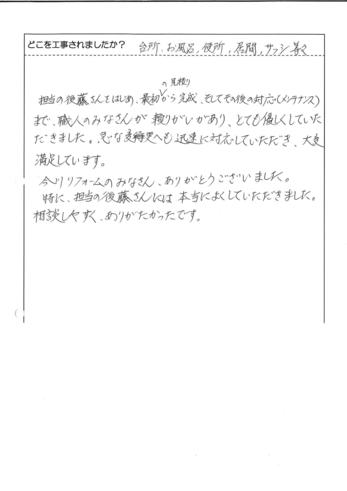 どこを工事されましたか? 台所、お風呂、便所、居間、サッシ等々
の見積り
担当の後藤さんをはじめ、最初から完成、そしてその後の対応(メンテナンス)
まで、職人のみなさんが頼りがいがあり、とても優しくしていた
だきました。急な変更へも迅速に対応していただき、大変
満足しています。
リフォームのみなさん、ありがとうございました。
特に、担当の後藤さんには本当によくしていただきました。
相談しやすく、ありがたかったです。